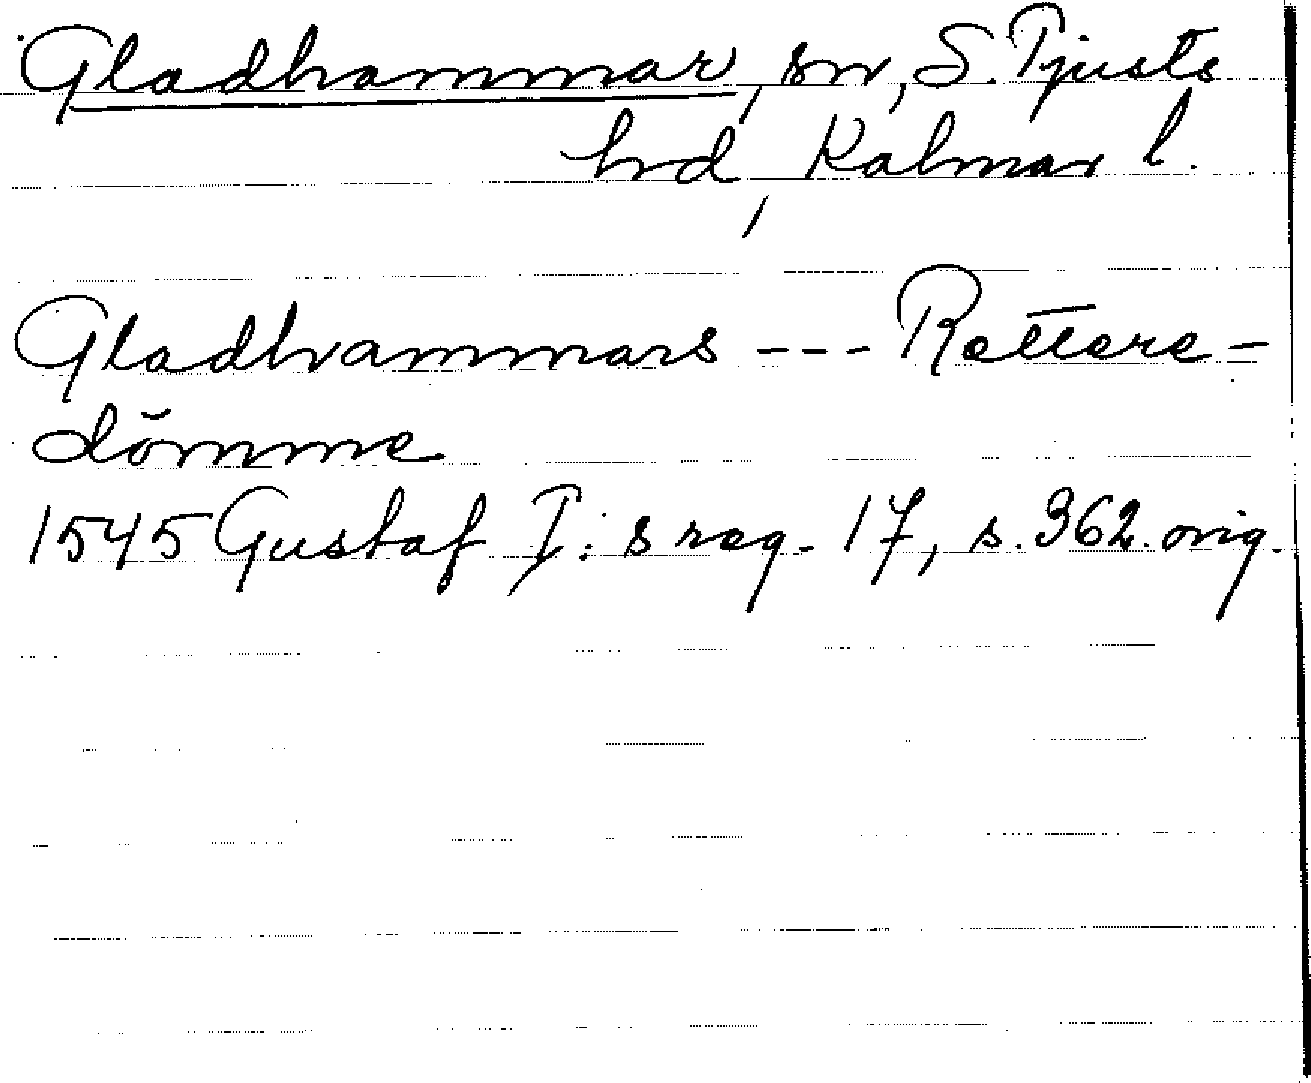 Gladhammar, sn, S. Tjusts
hd, Kalmar l.
Gladhvammars --- Rettere-
dömme
1545 Gustaf I:s reg. 17, s. 362. orig.